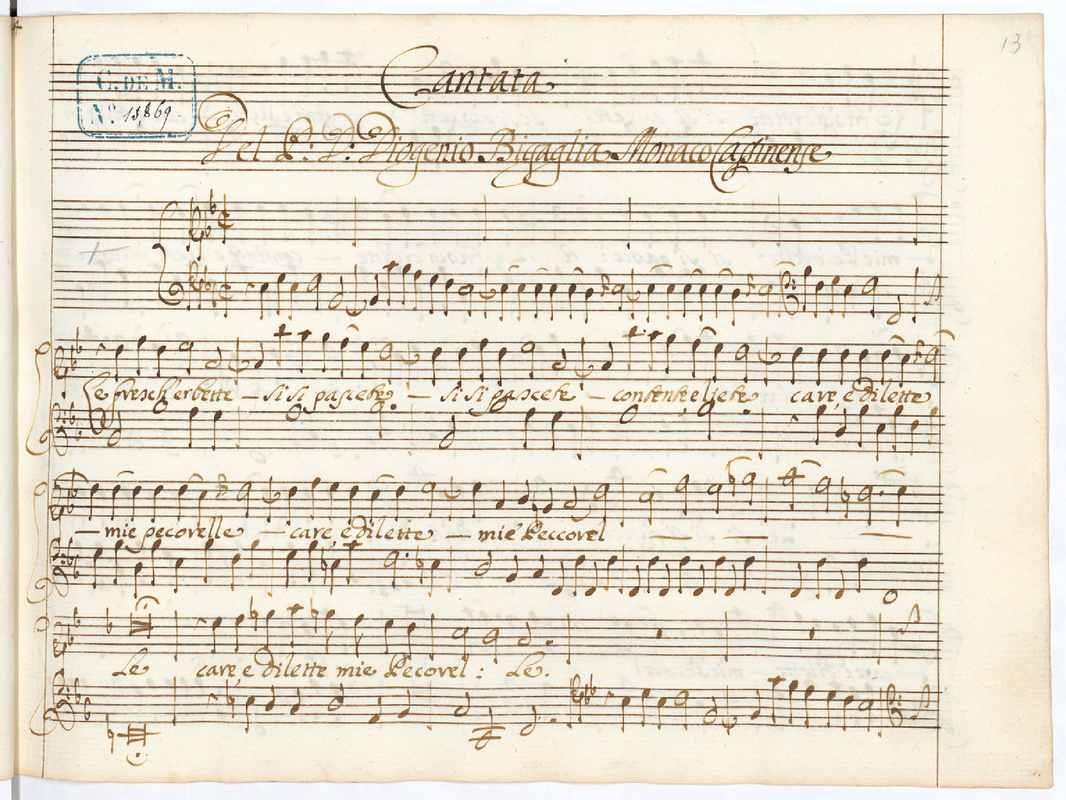 13
Cantata
G. DE M.
Nº. 15869
Del P: D: Diogenio Bigaglia Monaco Cassinense
Le fresch'erbette – si si pascete – si si pascete – contente e liete care, e dilette
mie pecorelle – care, e dilette – mie Peccorel – –
Le care, e dilette mie Pecorel : Le.